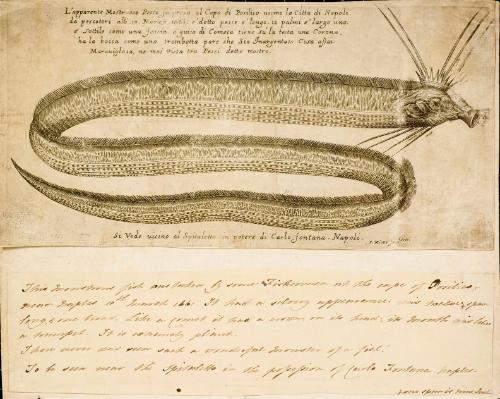 L'apparente Mostruoso Pesce fu preso al Capo di Posilico uicino la Città di Napoli
da pescatori alli 10. Marzo. 1661. è detto pesce è longo. 12. palmi è largo uno.
è Sottile como una fascia a guisa di Cometa tiene su la testa una Corona,
ha la bocca como una trombetta pare che Sia Inargentato Cosa assai
Marauigliosa, ne mai Uista tra Pesci detto mostro.
Si Vede uicino al Spitaletto in potere di Carlo fontana. Napoli.
This monstrous fish was taken by some Fishermen at the cape of
near Naples 10th March 1661. It had a silvery appearance, was twelve spans
long, & one broad. Like a comet it had a crown on its head; its mouth was like
a trumpet. It is extremely pliant.
There never was seen such a wonderful monster of a fish.
To be seen near the Spitaletto in the possession of Carlo Fontana Naples.